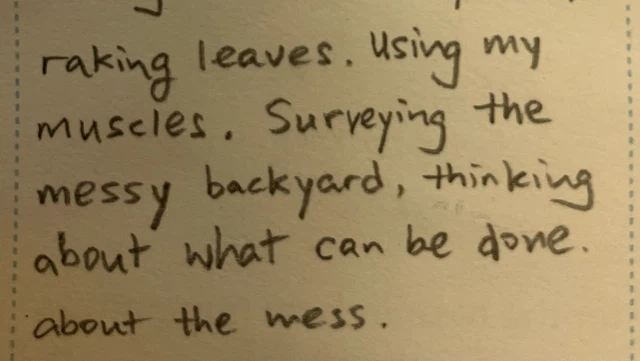 raking leaves. Using my
muscles. Surveying the
messy backyard, thinking
about what can be done.
about the mess.